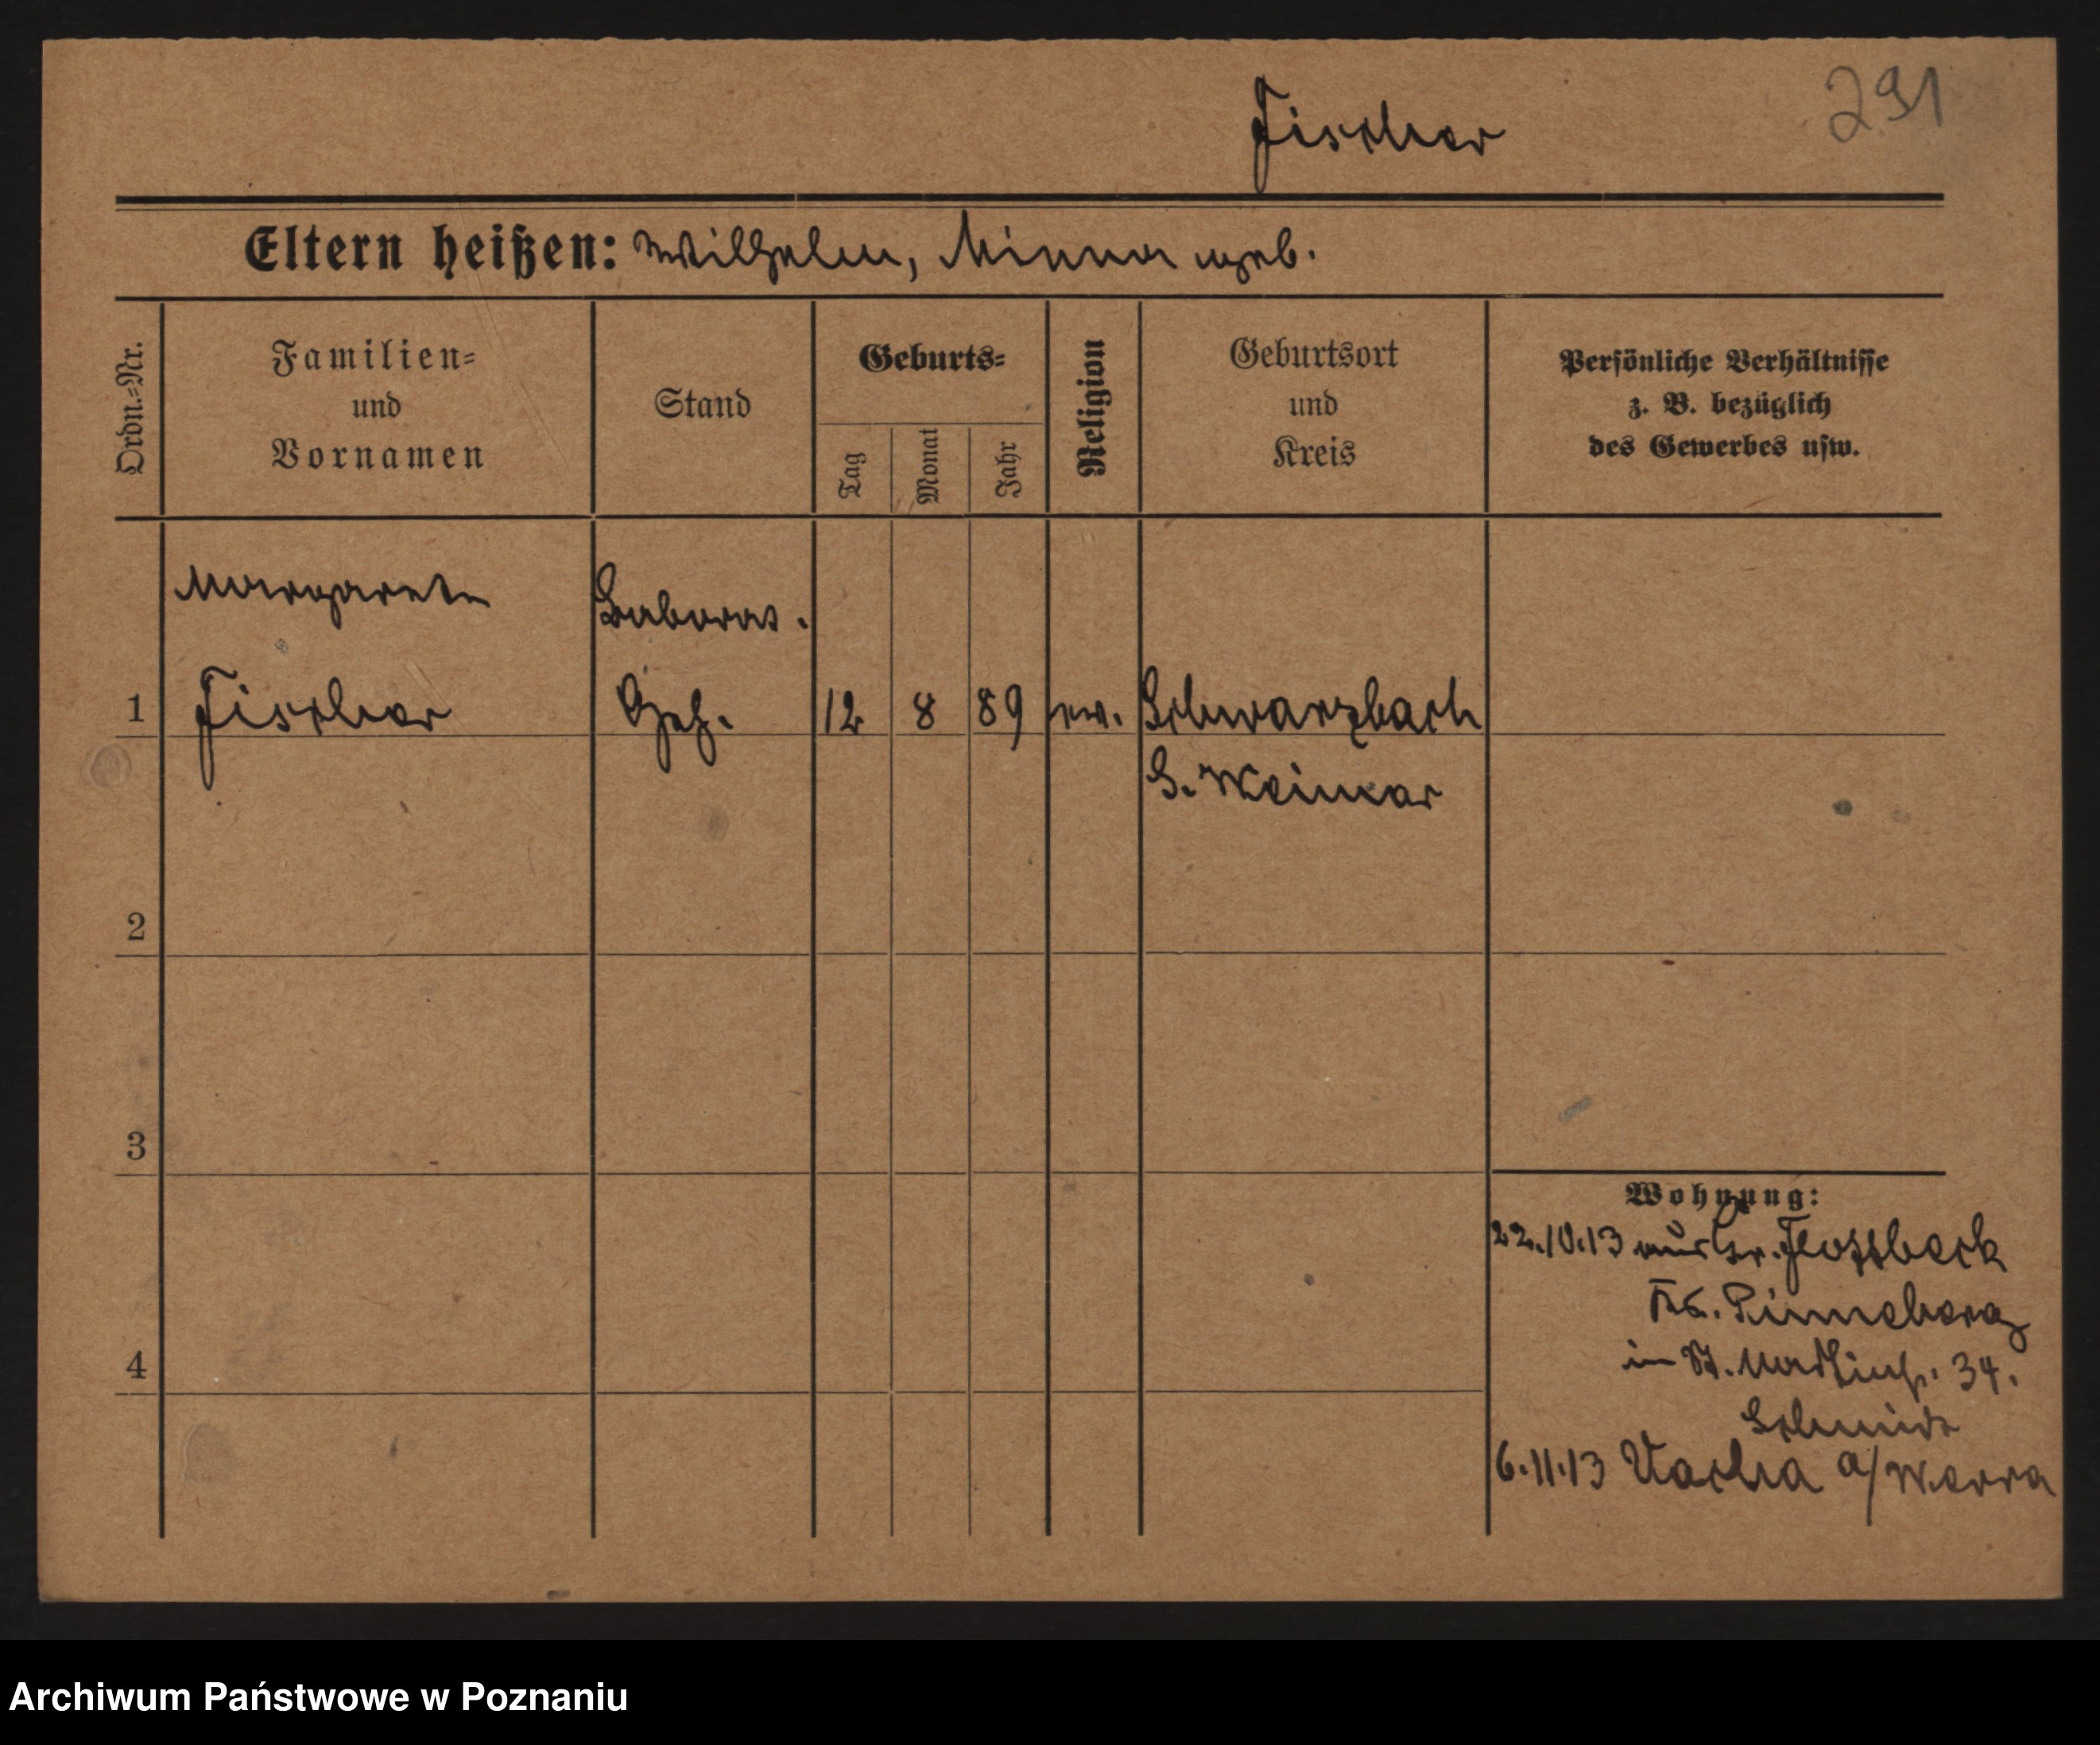 Fischer
291
Eltern heißen: Wilhelm, Minna geb.
Ordn.-Nr.
Familien-
und
Vornamen
Stand
Geburts-
Tag
Monat
Jahr
Religion
Geburtsort
und
Kreis
Persönliche Verhältnisse
z. B. bezüglich
des Gewerbes usw.
Margarete
Laborat.
1 Fischer Geh. 12 8 89 ev. Schwarzbach
S. Weimar
2
3
4
Wohnung:
22.10.13 aus Gr. Flottbeck
Krs. Pinneberg
in St. Martinstr. 34.
Schmidt
6.11.13 Vacha a/Werra
Archiwum Państwowe w Poznaniu